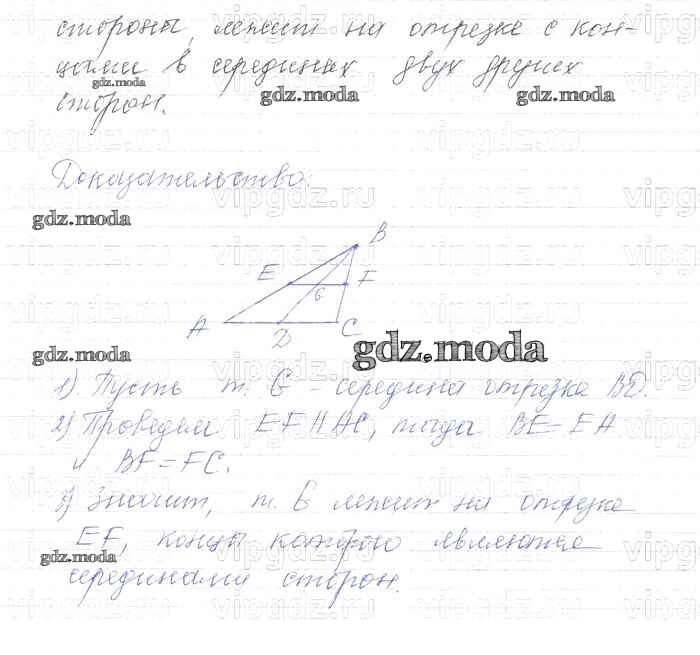 стороны, лежит на отрезке с кон-
цами в серединах двух других
сторон.
gdz.moda
gdz.moda gdz.moda
Доказательство:
gdz.moda
B
E F
G
A D C
gdz.moda
gdz.moda
1) Пусть т. G – середина отрезка BD.
2) Проведем EF || AC, тогда BE = EA
и BF = FC.
3) Значит, т. G лежит на отрезке
EF, концы которого являются
gdz.moda
серединами сторон.
vipgdz.ru